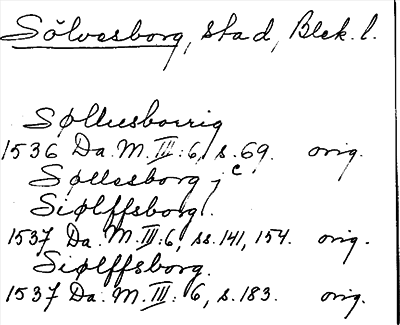 Sölvesborg, stad, Blek. l.
Sølluesborrig
1536 Da. M. III: 6, s. 69. orig.
Søllesborg j c
Siølffsborg.
1537 Da. M. III: 6, ss. 141, 154. orig.
Siølffsborg.
1537 Da. M. III: 6, s. 183. orig.